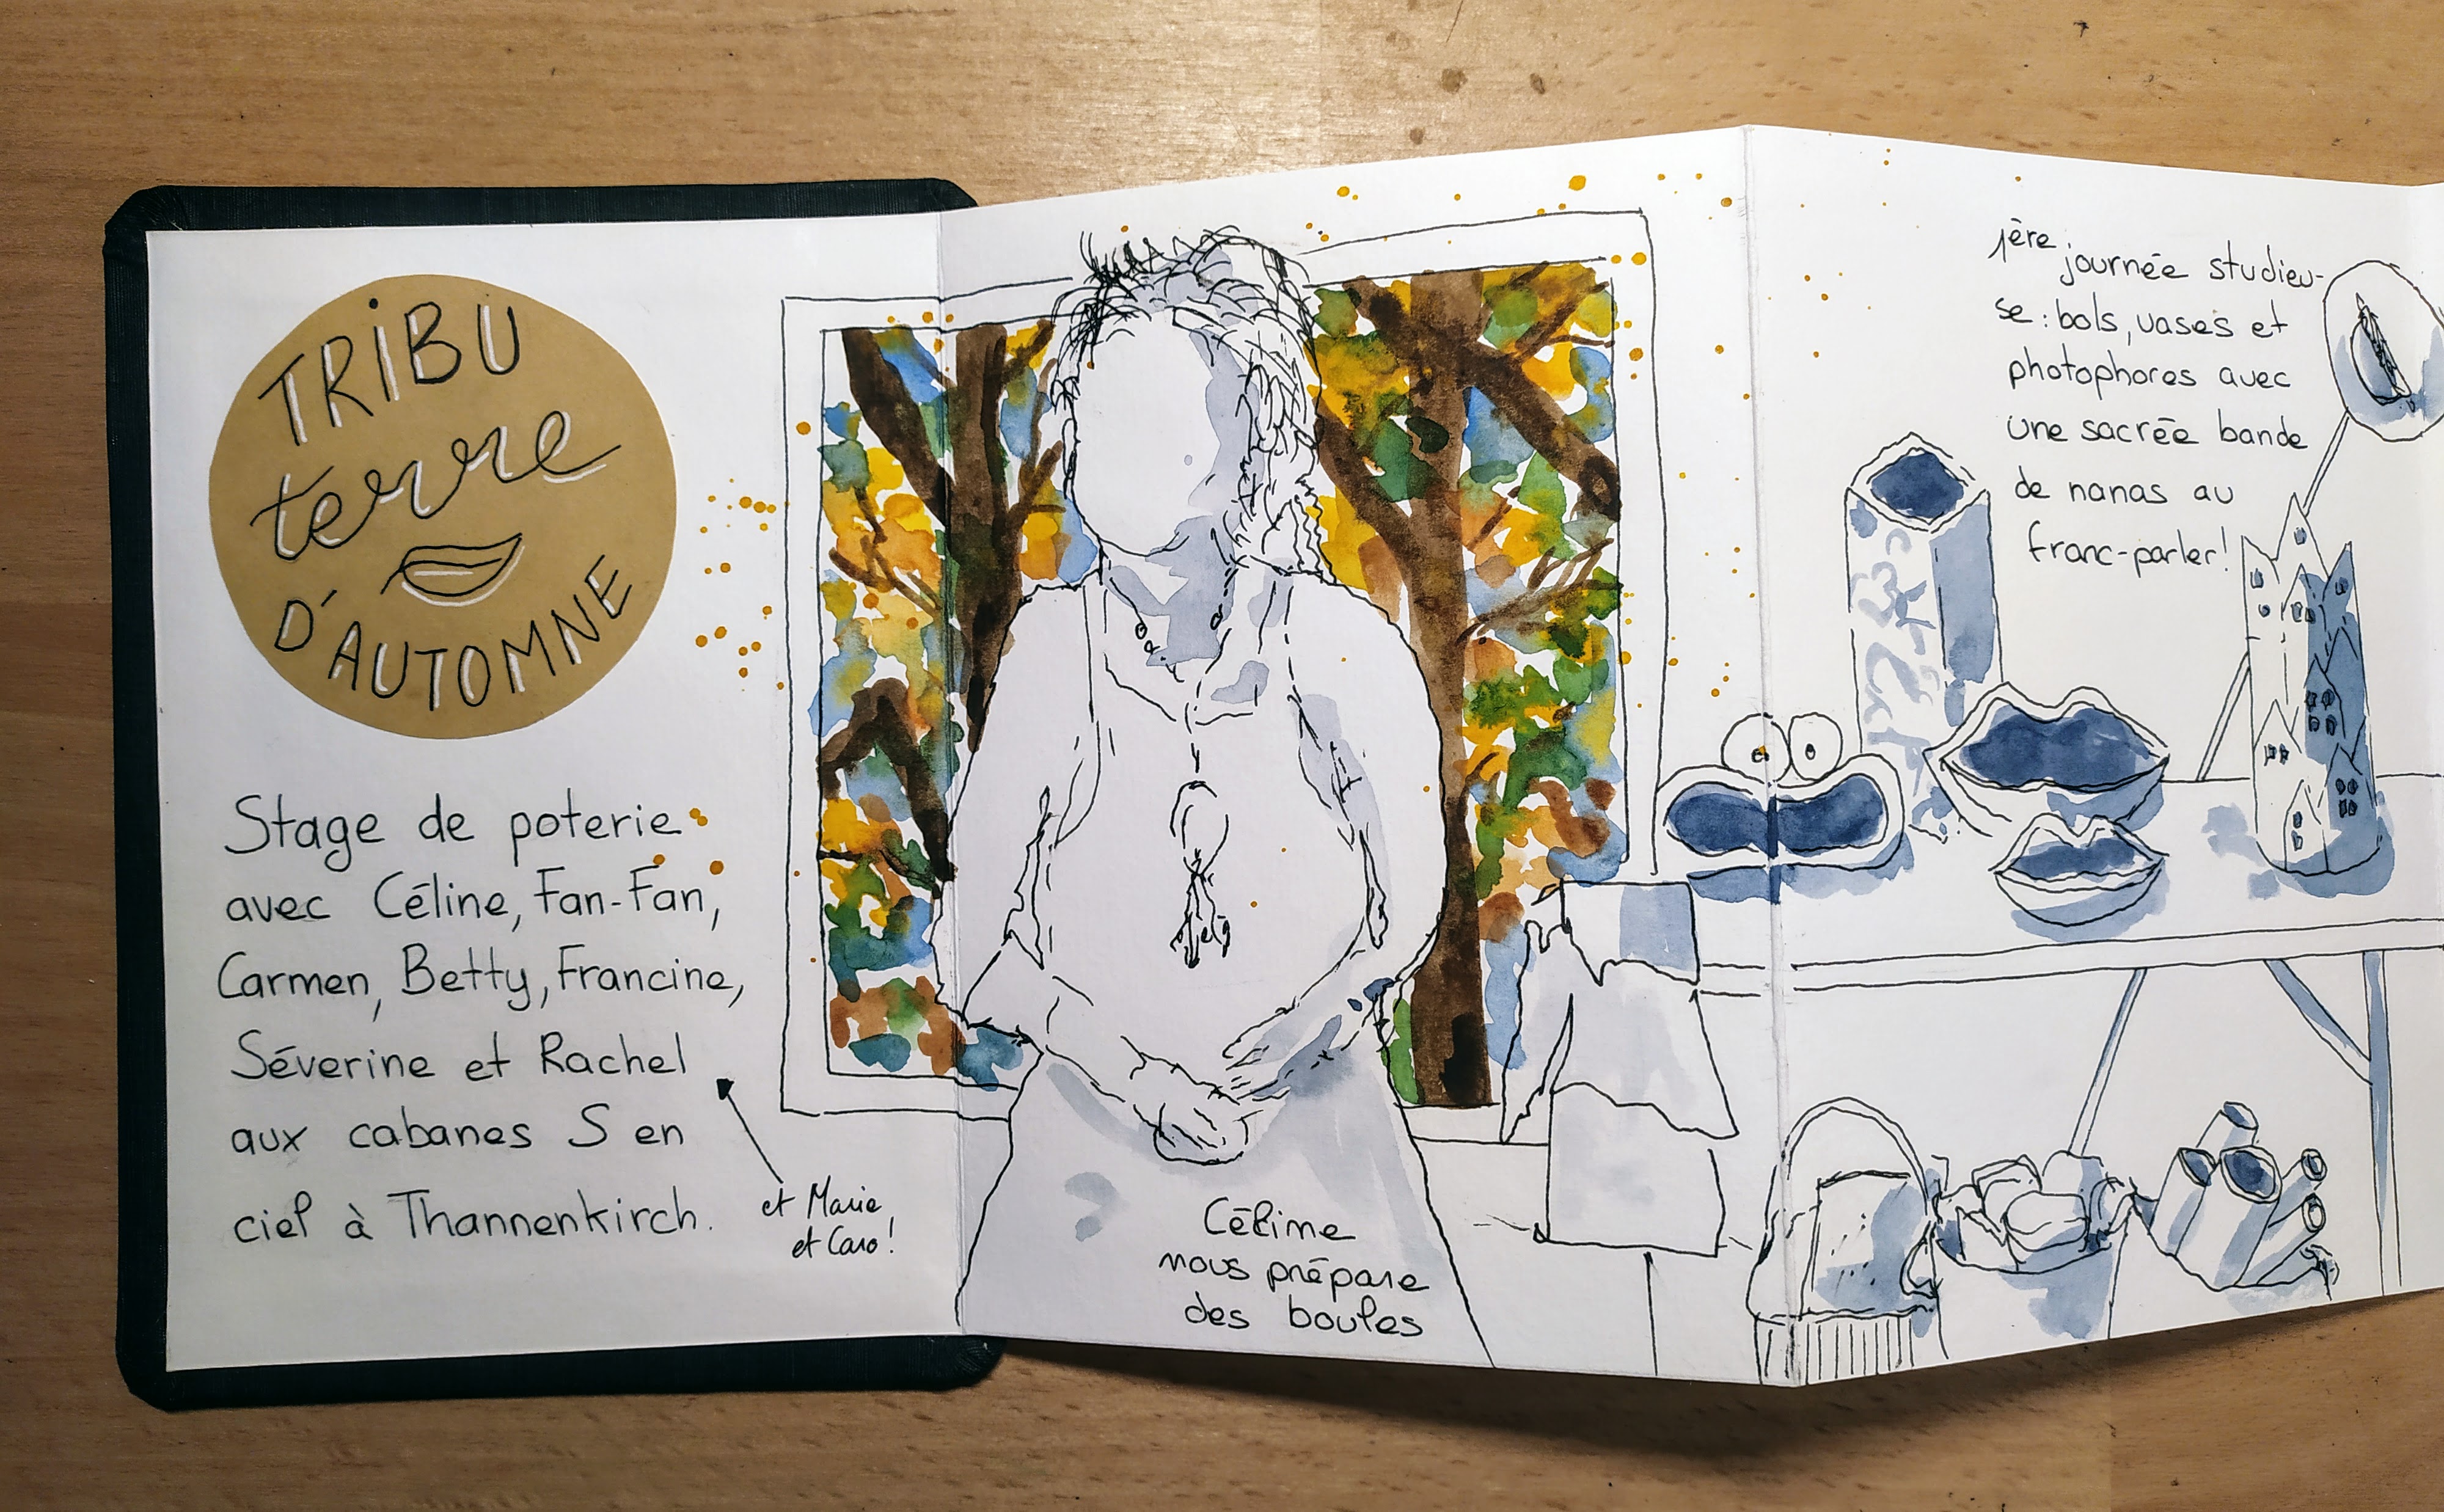 TRiBU
terre
D'AUTOMNE
Stage de poterie
avec Céline, Fan-Fan,
Carmen, Betty, Francine,
Séverine et Rachel
aux cabanes S en
ciel à Thannenkirch.
et Marie
et Caro!
Céline
nous prépare
des boules
1ère journée studieu-
se: bols, vases et
photophores avec
une sacrée bande
de nanas au
franc-parler!